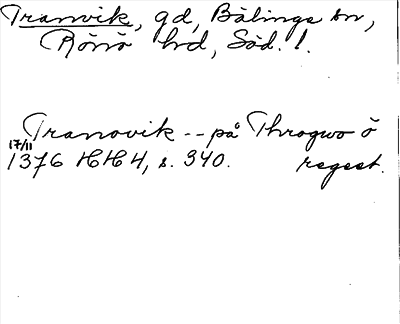 Tranvik, gd, Bälinge sn,
Rönö hd, Söd. l.
Tranovik -- på Throgwo ö
17/11
1376 HH 4, s. 340. regest.